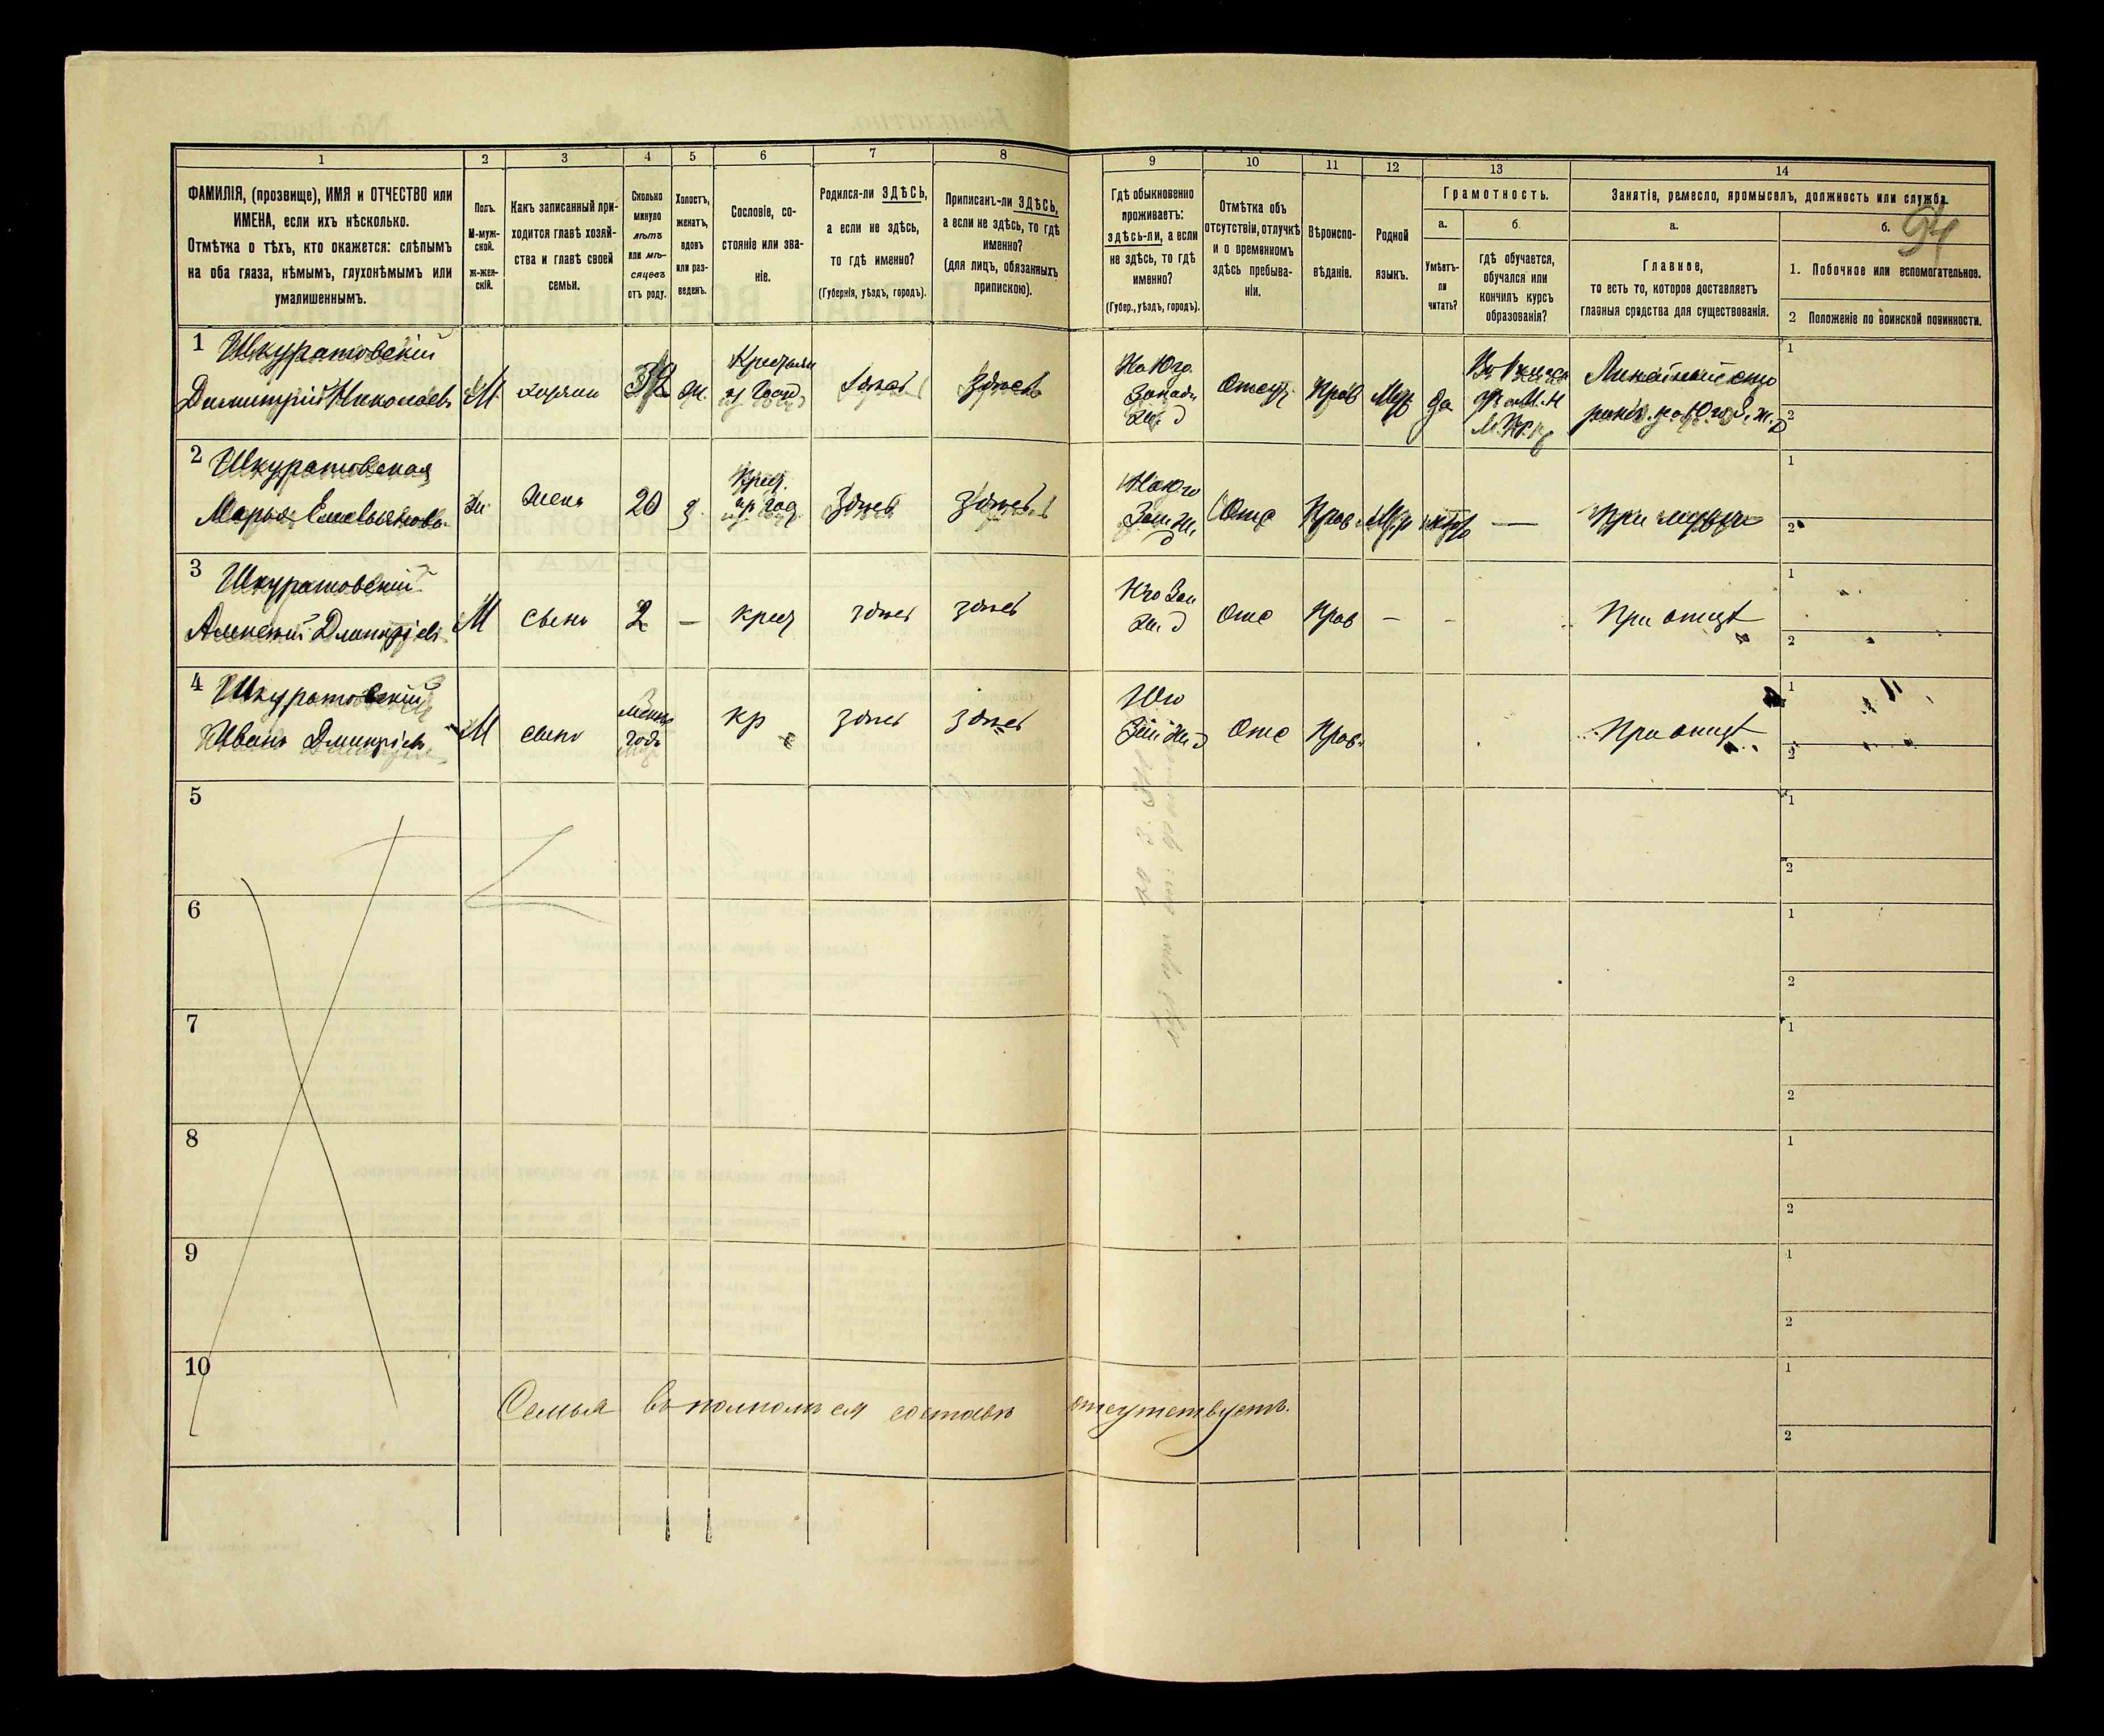 94
1
2
3
4
5
6
7
8
9
10
11
12
13
14
ФАМИЛІЯ, (прозвище), ИМЯ и ОТЧЕСТВО или
ИМЕНА, если ихъ нѣсколько.
Отмѣтка о тѣхъ, кто окажется: слѣпымъ
на оба глаза, нѣмымъ, глухонѣмымъ или
умалишеннымъ.
Полъ.
М-муж-
ской.
ж-жен-
скій.
Какъ записанный при-
ходится главѣ хозяй-
ства и главѣ своей
семьи.
Сколько
минуло
лѣтъ
или мѣ-
сяцевъ
отъ роду.
Холостъ,
женатъ,
вдовъ
или раз-
веденъ.
Сословіе, со-
стояніе или зва-
ніе.
Родился-ли ЗДѢСЬ,
а если не здѣсь,
то гдѣ именно?
(Губернія, уѣздъ, городъ).
Приписанъ-ли ЗДѢСЬ,
а если не здѣсь, то гдѣ
именно?
(для лицъ, обязанныхъ
припискою).
Гдѣ обыкновенно
проживаетъ:
здѣсь-ли, а если
не здѣсь, то гдѣ
именно?
(Губер., уѣздъ, городъ).
Отмѣтка объ
отсутствіи, отлучкѣ
и о временномъ
здѣсь пребыва-
ніи.
Вѣроиспо-
вѣданіе.
Родной
языкъ.
Грамотность.
а.
Умѣетъ-
ли
читать?
б.
гдѣ обучается,
обучался или
кончилъ курсъ
образованія?
Занятіе, ремесло, промыселъ, должность или служба.
а.
Главное,
то есть то, которое доставляетъ
главныя средства для существованія.
б.
1. Побочное или вспомогательное.
2 Положеніе по воинской повинности.
1 Шкуратовскій
Димитрій Николаевъ
М
хозяинъ
32
ж.
здѣсь
здѣсь
На Юго
Западн
ж. д
Отсут.
Прав
да
1
2
2 Шкуратовская
Марья Емельянова
ж
жена
20
з.
здѣсь
здѣсь
На Юго
Зап ж.
д
Отс
Прав.
—
При мужѣ
1
2
3 Шкуратовскій
Алексѣй Дмитріевъ
М
сынъ
2
—
крест
здѣсь
здѣсь
Юго Зап
ж. д
Отс
Прав
-
-
При отцѣ
1
2
4 Шкуратовскій
Иванъ Дмитріевъ
М
сынъ
Менѣе
года
кр
здѣсь
здѣсь
Юго
Зап ж д
Отс
Прав.
При отцѣ
1
2
5
1
2
6
1
2
7
1
2
8
1
2
9
1
2
10
1
2
Семья въ полномъ ея составѣ отсутствуетъ.